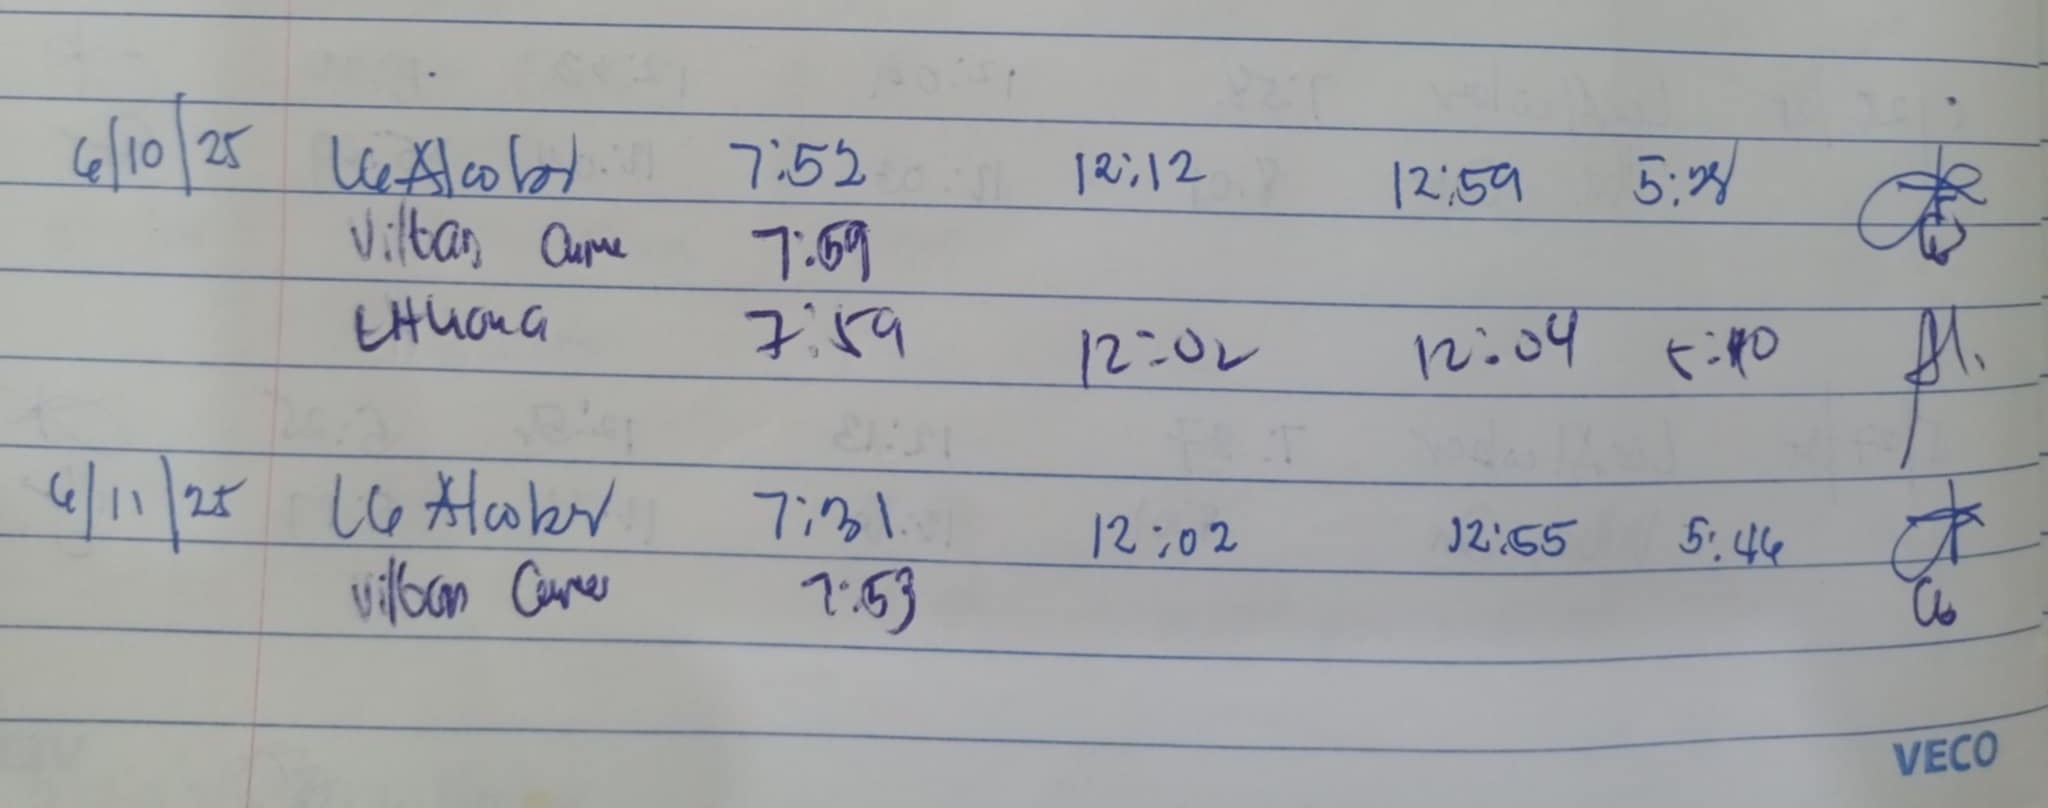 6/10/25 LG Alcober 7:52 12:12 12:59 5:28
Vilban 7:59
7:59 12:02 12:04 5:10
6/11/25 LG Alcober 7:31 12:02 12:55 5:46
Vilban 7:53
VECO